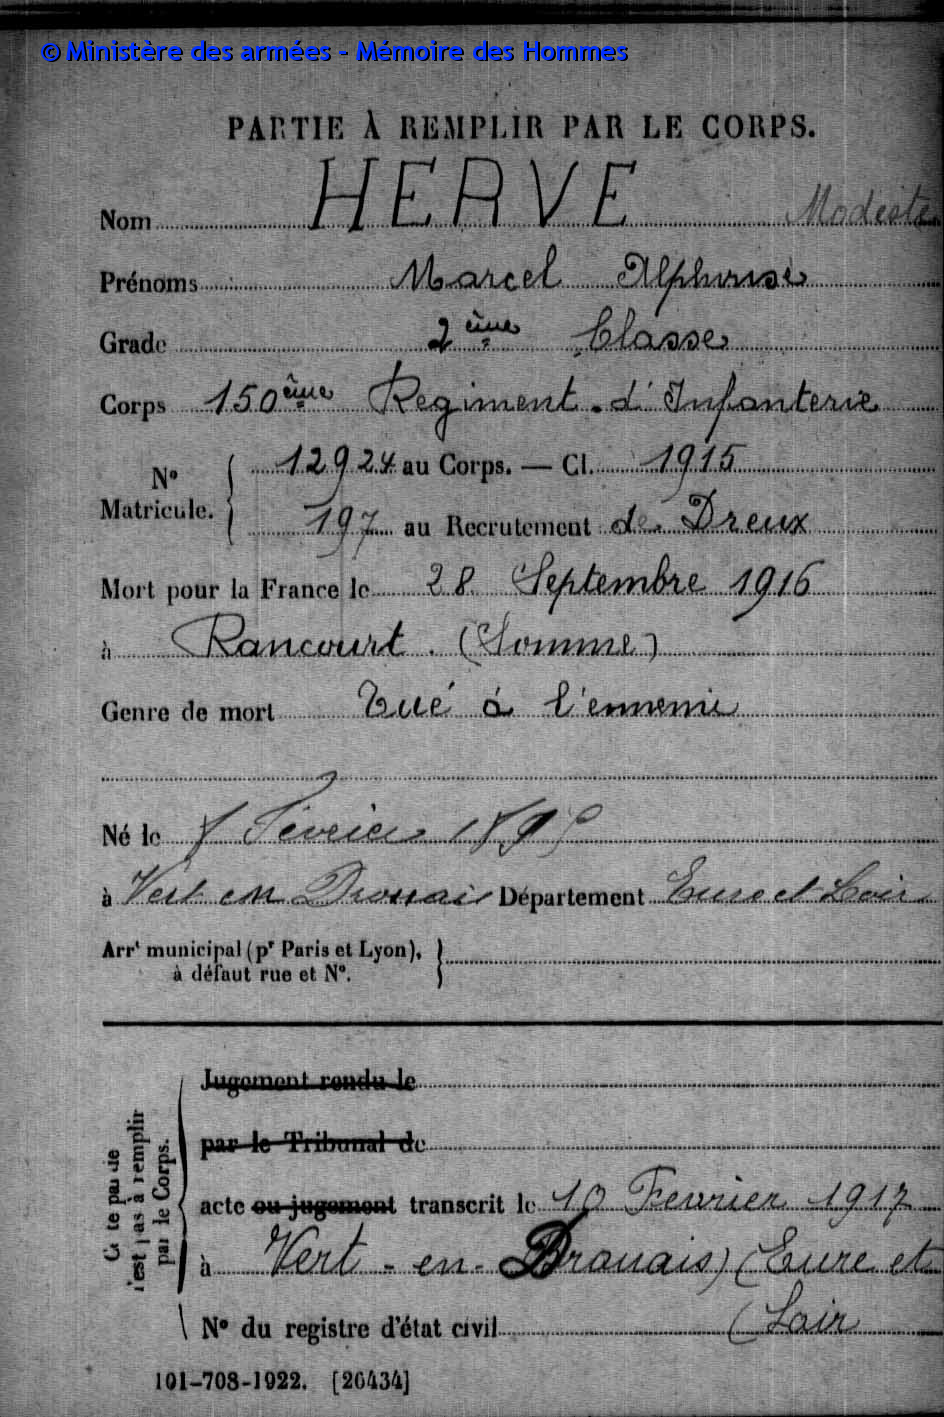 © Ministère des armées - Mémoire des Hommes
PARTIE À REMPLIR PAR LE CORPS.
Nom HERVE Modeste
Prénoms Marcel Alphonse
Grade 2ème Classe
Corps 150ème Regiment d'Infanterie
N° Matricule. 12924 au Corps. — Cl. 1915
197 au Recrutement de Dreux
Mort pour la France le 28 Septembre 1916
à Rancourt (Somme)
Genre de mort Tué à l'ennemi
Né le 8 Février 1895
à Vert en Drouais Département Eure et Loir
Arrt municipal (pr Paris et Lyon),
à défaut rue et N°.
Cette partie
n'est pas à remplir
par le Corps.
Jugement rendu le
par le Tribunal de
acte ou jugement transcrit le 10 Fevrier 1917
à Vert-en-Drouais) (Eure et
N° du registre d'état civil (Loir
101-708-1922. [26434]